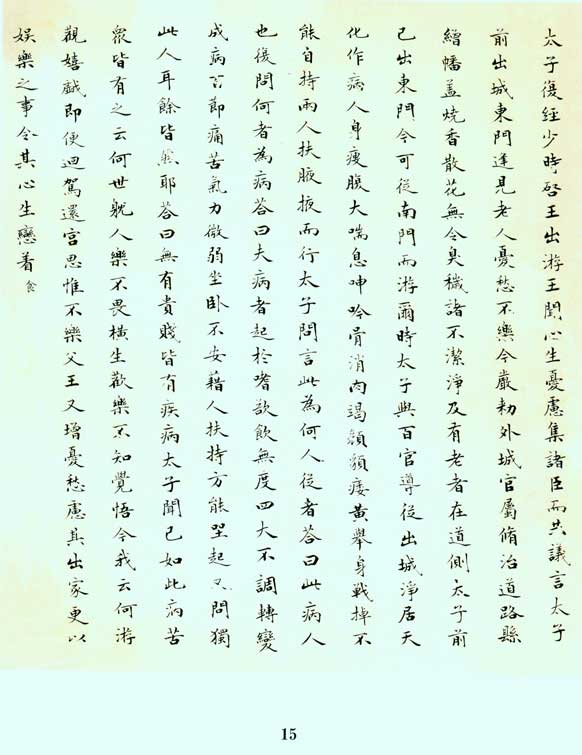 太子復經少時啓王出游王聞心生憂慮集諸臣而共議言太子
前出城東門逢見老人憂愁不樂今嚴勑外城官屬脩治道路縣
繒幡蓋燒香散花無令臭穢諸不潔淨及有老者在道側太子前
已出東門今可從南門而游爾時太子與百官導從出城淨居天
化作病人身瘦腹大喘息呻吟骨消肉竭顏貌痿黃舉身戰掉不
能自持兩人扶腋掖而行太子問言此為何人從者答曰此病人
也復問何者為病答曰夫病者起於嗜欲飲無度四大不調轉變
成病百節痛苦氣力微弱坐卧不安藉人扶持方能坚起又問獨
此人耳餘皆然耶答曰無有貴賤皆有疾病太子聞已如此病苦
衆皆有之云何世貌人樂不畏橫生歡樂不知覺悟今我云何游
觀嬉戲即便迴駕還宮思惟不樂父王又增憂愁慮其出家更以
娛樂之事令其心生戀着
食
15